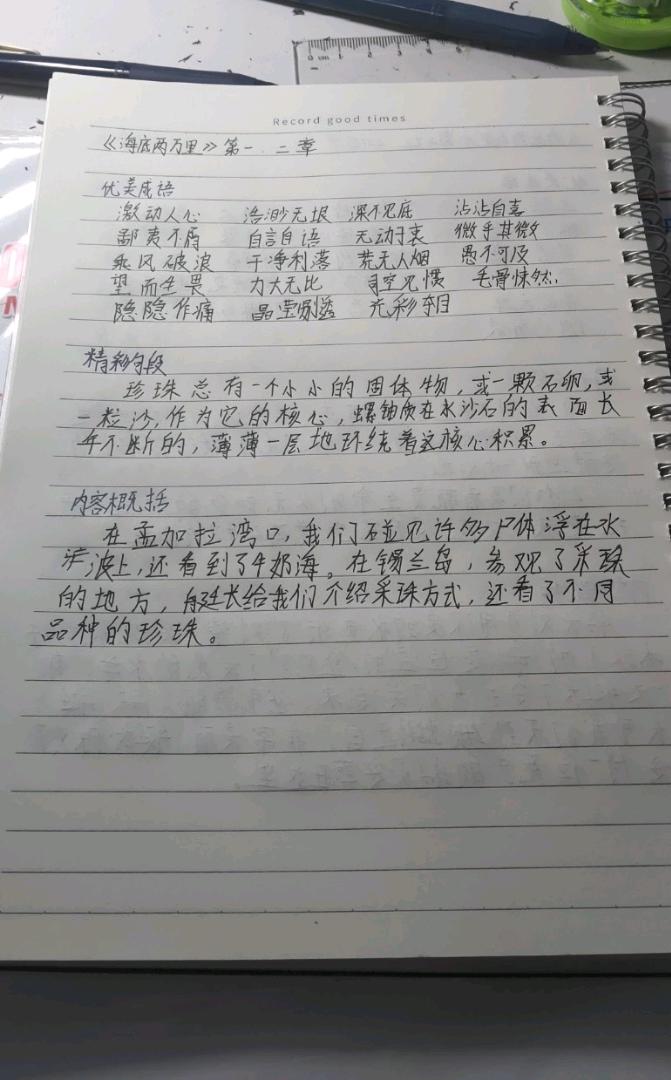 Record good times
《海底两万里》第一、二章
优美成语
激动人心 浩渺无垠 深不见底 沾沾自喜
鄙夷不屑 自言自语 无动于衷 微乎其微
乘风破浪 干净利落 荒无人烟 愚不可及
望而生畏 力大无比 司空见惯 毛骨悚然
隐隐作痛 晶莹剔透 光彩夺目
精彩句段
珍珠总有一个小小的固体物，或一颗石卵，或
一粒沙，作为它的核心，螺钿质在水沙石的表面长
年不断的，薄薄一层地环绕着这核心积累。
内容概括
在孟加拉湾口，我们碰见许多尸体浮在水
波上，还看到了牛奶海。在锡兰岛，参观了采珠
的地方，船长给我们介绍采珠方式，还看了不同
品种的珍珠。